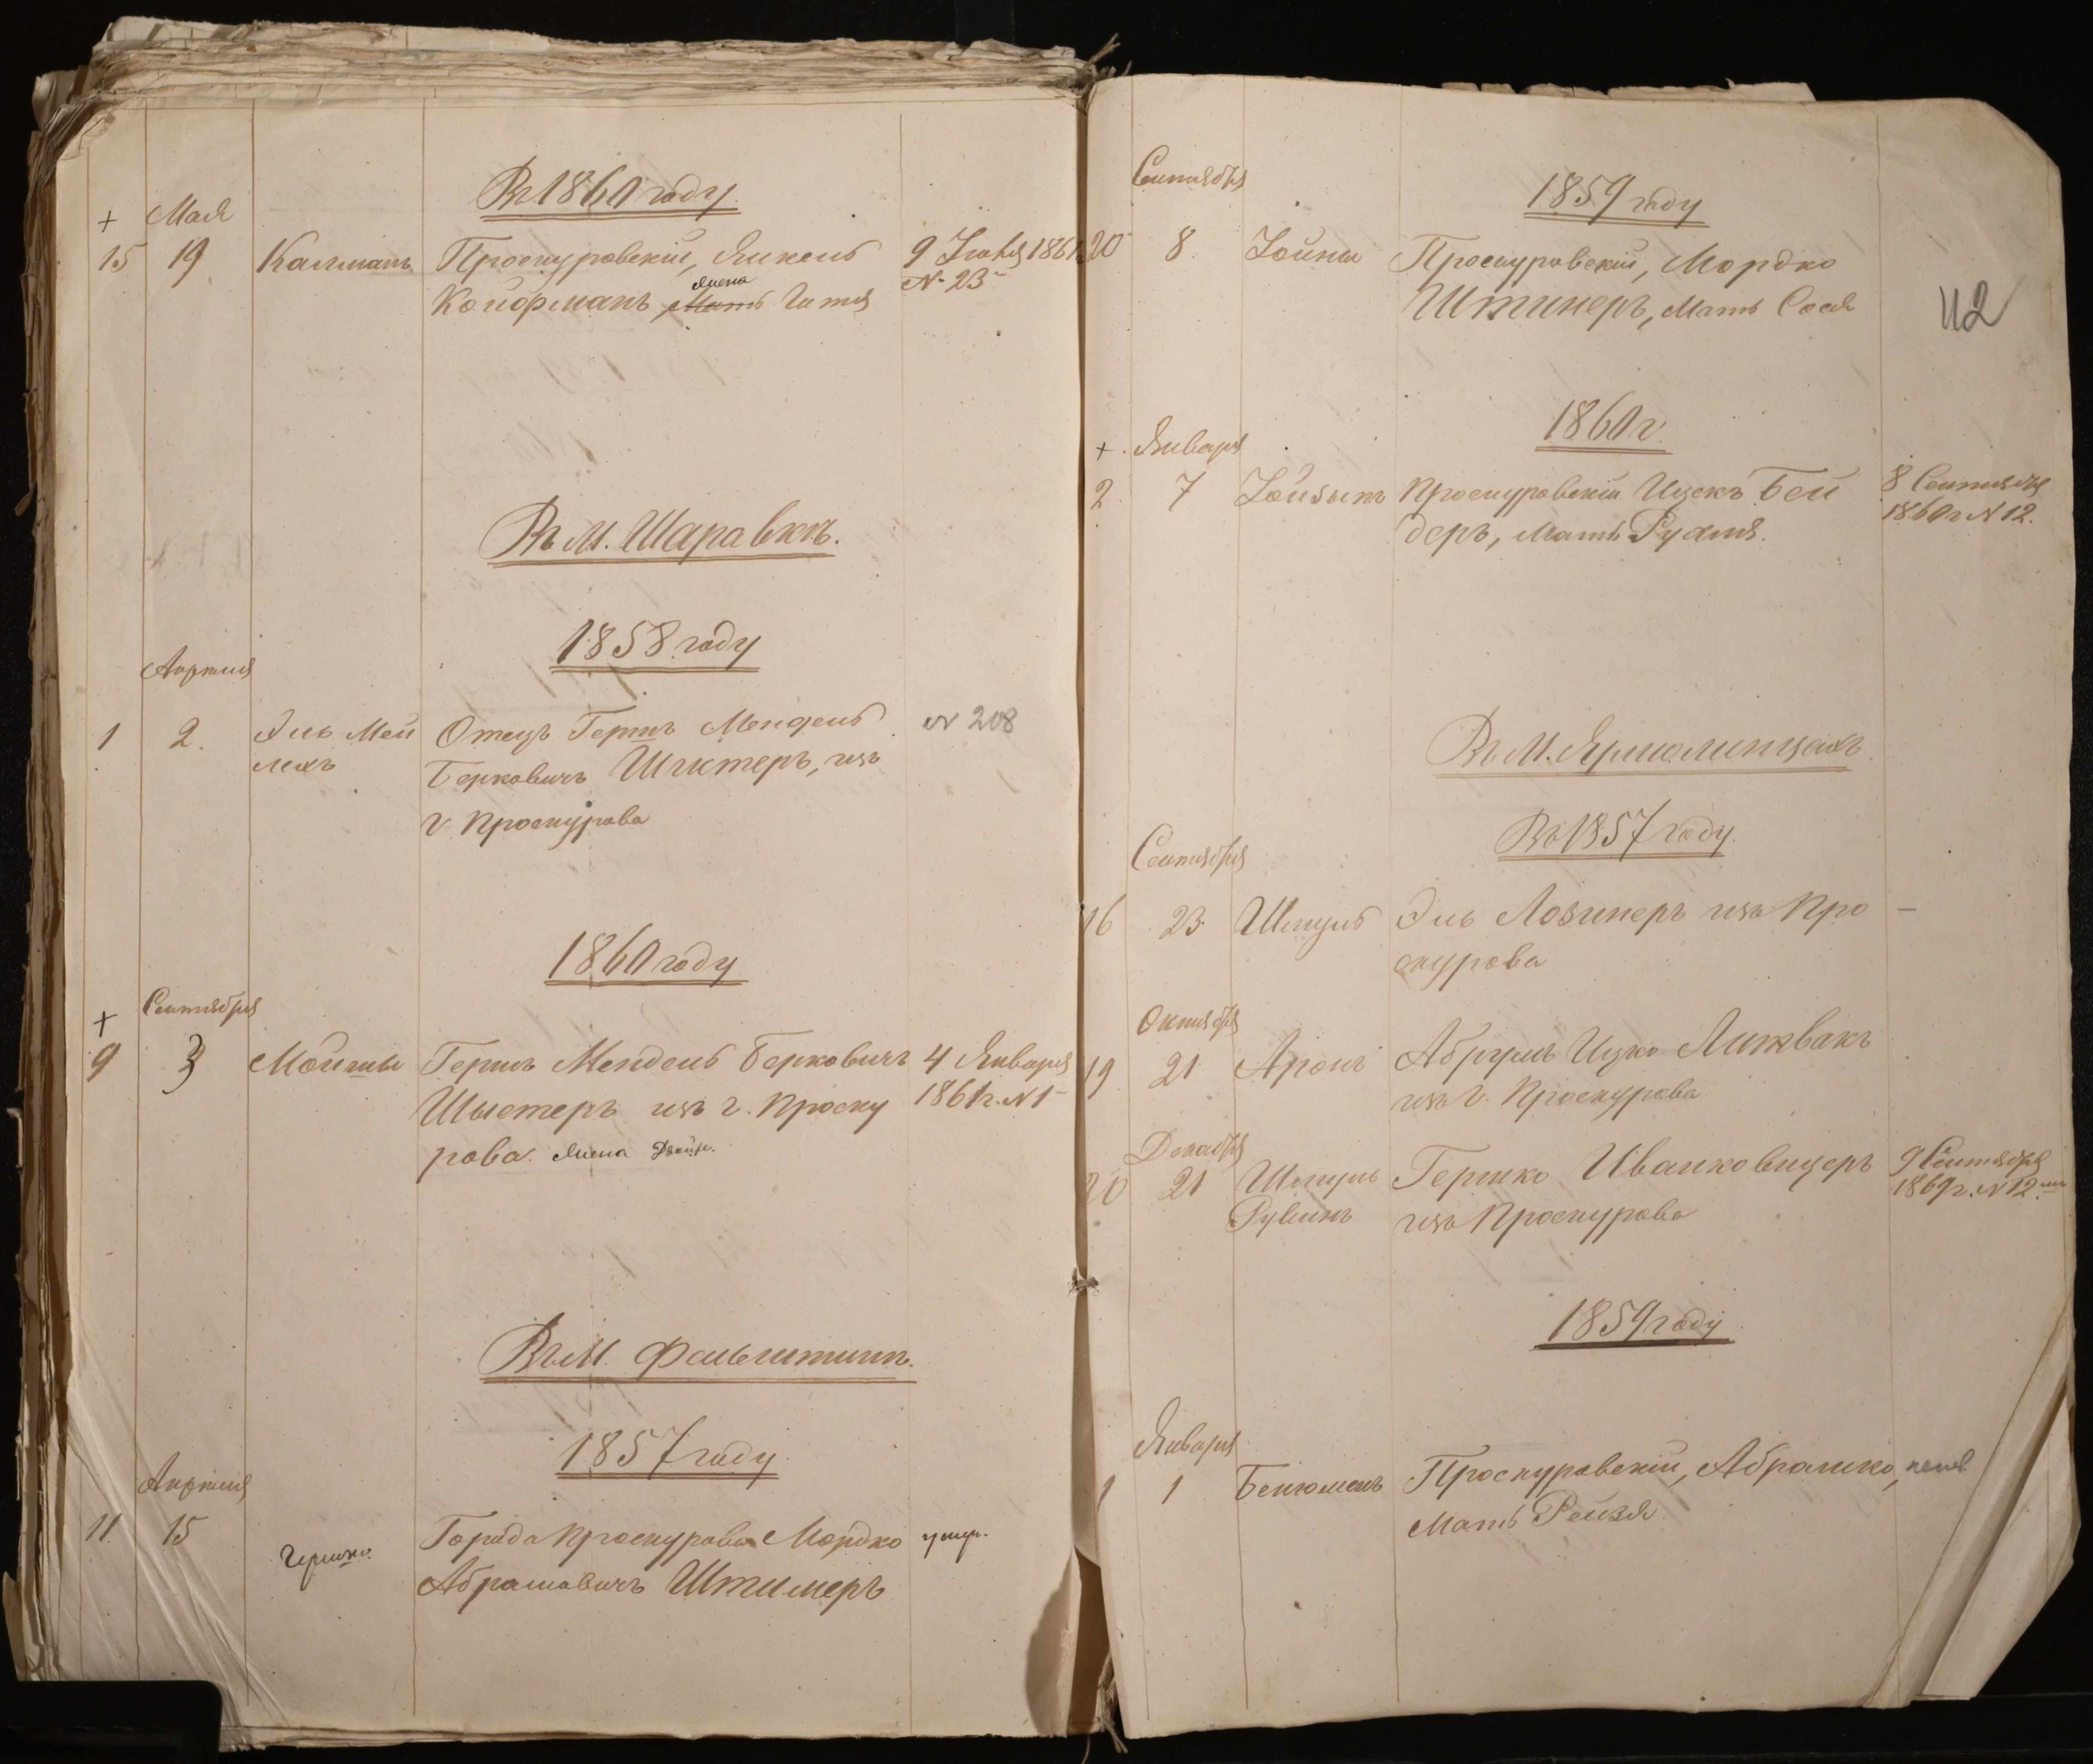 Въ 1860 году
+ Мая
15 19 Калманъ Проскуровскій, Янкель 9 Іюня 1861
Койфманъ, Мать жена Гитля № 23
Въ М. Шаравкѣ.
1858 году
Апрѣля
1 2. Эль Мей Отецъ Гершъ Мендель № 208
лехъ Берковичъ Шистеръ, изъ
г. Проскурова
1860 году
+ Сентября
9 3 Мойшы Гершъ Мендель Берковичъ 4 Января
Шыстеръ изъ г. Проску 1861 г. № 1
рова. жена Двойр.
Въ М. Фельштинѣ.
1857 году
Апрѣля
11 15 Гершко Города Проскурова Мордко умер.
Абрамовичъ Штимеръ
Сентября
1859 году
20 8 Іойны Проскуровскій, Мордко
Штинеръ, Мать Сося
112
1860 г.
+ Января
2 7 Проскуровскій Ицекъ Бей 8 Сентября
деръ, Мать Рухля. 1860 г № 12.
Въ М. Ярмолинцахъ
Въ 1857 году
Сентября
16 23 Шмуль Эль Лозинеръ изъ Про —
скурова
Октября
19 21 Аронъ Абрумъ Ицко Литвакъ
изъ г. Проскурова
Декабря
20 21 Шмуль Гершко Иванковицеръ 9 Сентября
Рувинъ изъ Проскурова № 12
1859 году
Января
1 1 Бенюменъ Проскуровскій, Абрамко,
Мать Рейзя